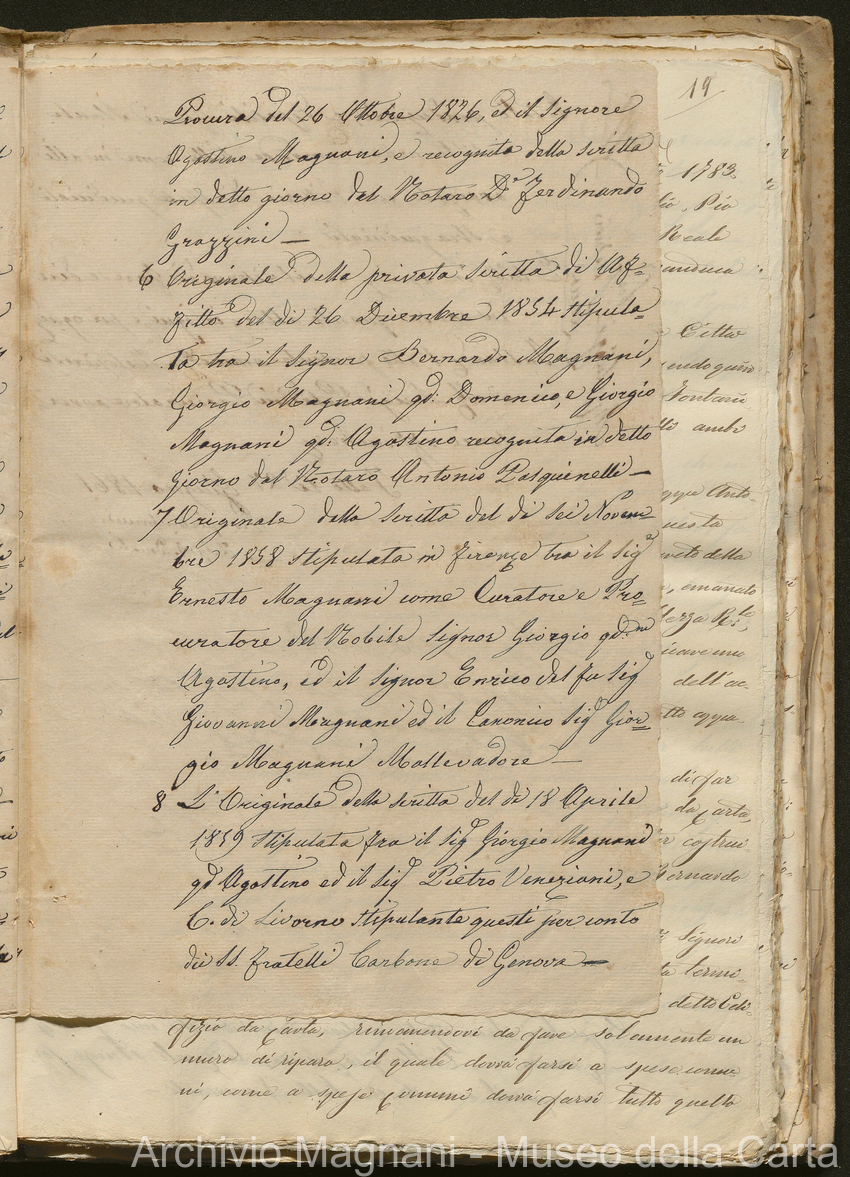 19
Procura del 26 Ottobre 1826, ed il Signore
Agostino Magnani, e recognita della scritta
in detto giorno dal Notaro D.e Ferdinando
Grazzini —
6 Originale della privata scritta di Af=
fitto del di 26 Dicembre 1854 stipula=
ta tra il Signor Bernardo Magnani,
Giorgio Magnani qd: Domenico, e Giorgio
Magnani qd: Agostino recognita in detto
giorno dal Notaro Antonio Pasquinelli —
7 Originale della scritta del di sei Novem=
bre 1858 stipulata in Firenze tra il Sig.e
Ernesto Magnani come Curatore e Pro=
curatore del Nobile Signor Giorgio qd.m
Agostino, ed il Signor Enrico del fu Sig.e
Giovanni Magnani ed il Canonico Sig.e Gior=
gio Magnani Mallevadore —
8 L'Originale della scritta del di 18 Aprile
1859 stipulata fra il Sig.e Giorgio Magnani
qd Agostino ed il Sig.e Pietro Veneziani, e
C. di Livorno stipulante questi per conto
dei SS. Fratelli Carbone di Genova —
1783.
Pio
Reale
Città
Fontani
ambi
Anto-
questa
della
emanato
dell'ac-
di far
da Carta,
costrui-
Bernardo
Signori
termi-
detto Edi-
fizio da Carta, rimanendovi da fare solamente un
muro di riparo, il quale dovrà farsi a spese comu-
ni, come a spese comuni dovrà farsi tutto quello
Archivio Magnani - Museo della Carta